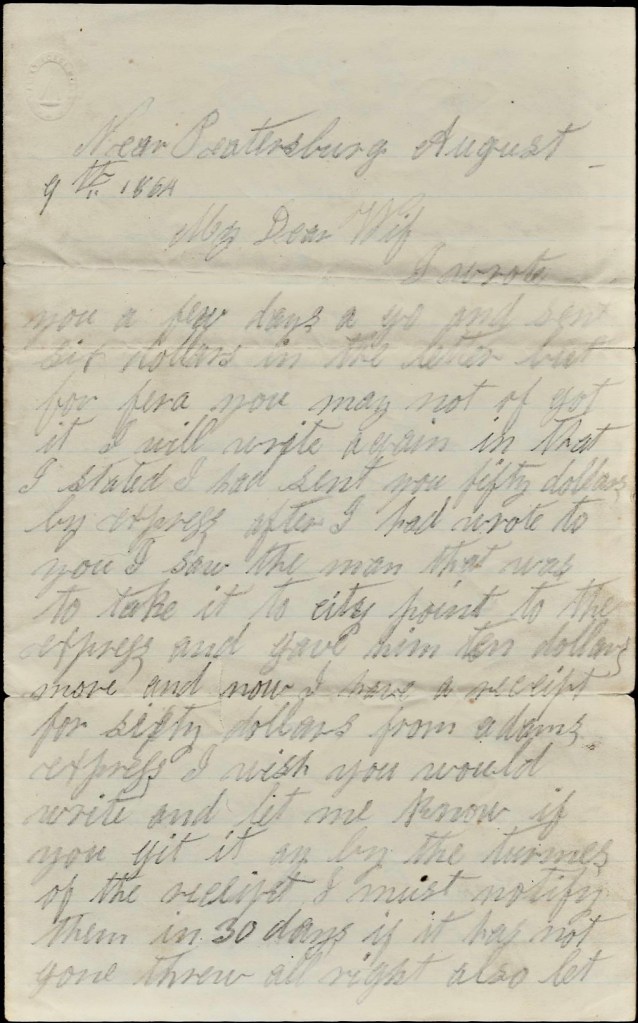 Near Peatersburg August
9th 1864
My Dear Wif
I wrote
you a few days a go and sent
six dollars in the letter but
for fera you may not of got
it I will write again in that
I stated I had sent you fifty dollars
by express after I had wrote to
you I saw the man that was
to take it to city point to the
express and gave him ten dollars
more and now I have a receipt
for sixty dollars from adams
express I wish you would
write and let me know if
you git it as by the turmes
of the receipt I must notify
them in 30 days if it has not
gone threw all right also let